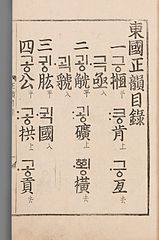 東國正韻目錄
一긍揯平 긍肯上 긍亙去
극亟入
二굉觥平 굉礦上 횡橫去
괵虢入
三귕肱平 귁國入
四공公平 공拱上 공貢去